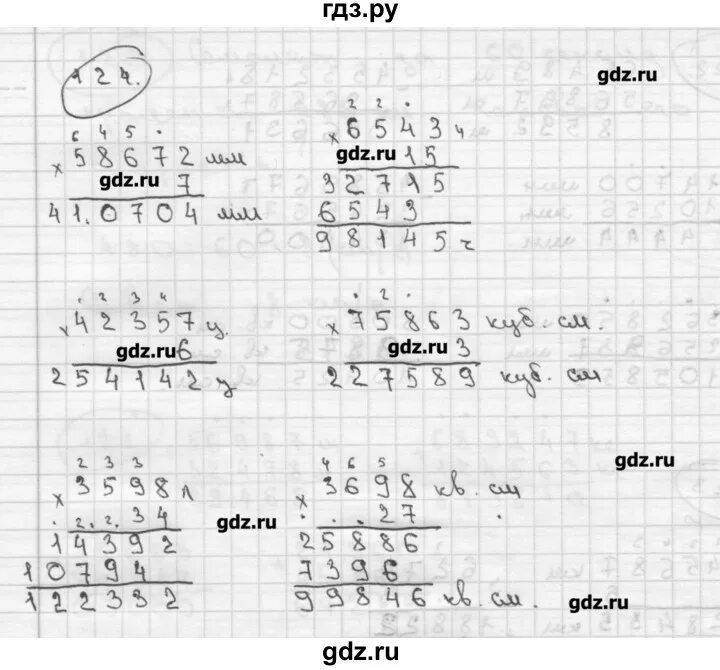 гдз.ру
124.
gdz.ru
6 4 5
58672 мм
×
gdz.ru 7
41.0704 мм
2 2
6543 ч
×
gdz.ru 15
32715
6543
98145 ч
2 3 4
42357 ц.
×
gdz.ru 6
254142 ц
2
75863 куб. см.
×
gdz.ru 3
227589 куб. см
gdz.ru
2 3 3
3598 л
×
2. 2. 34
gdz.ru
14392
10794
122332
4 6 5
3698 кв. см
×
27
25886
7396
99846 кв. см.
gdz.ru
gdz.ru